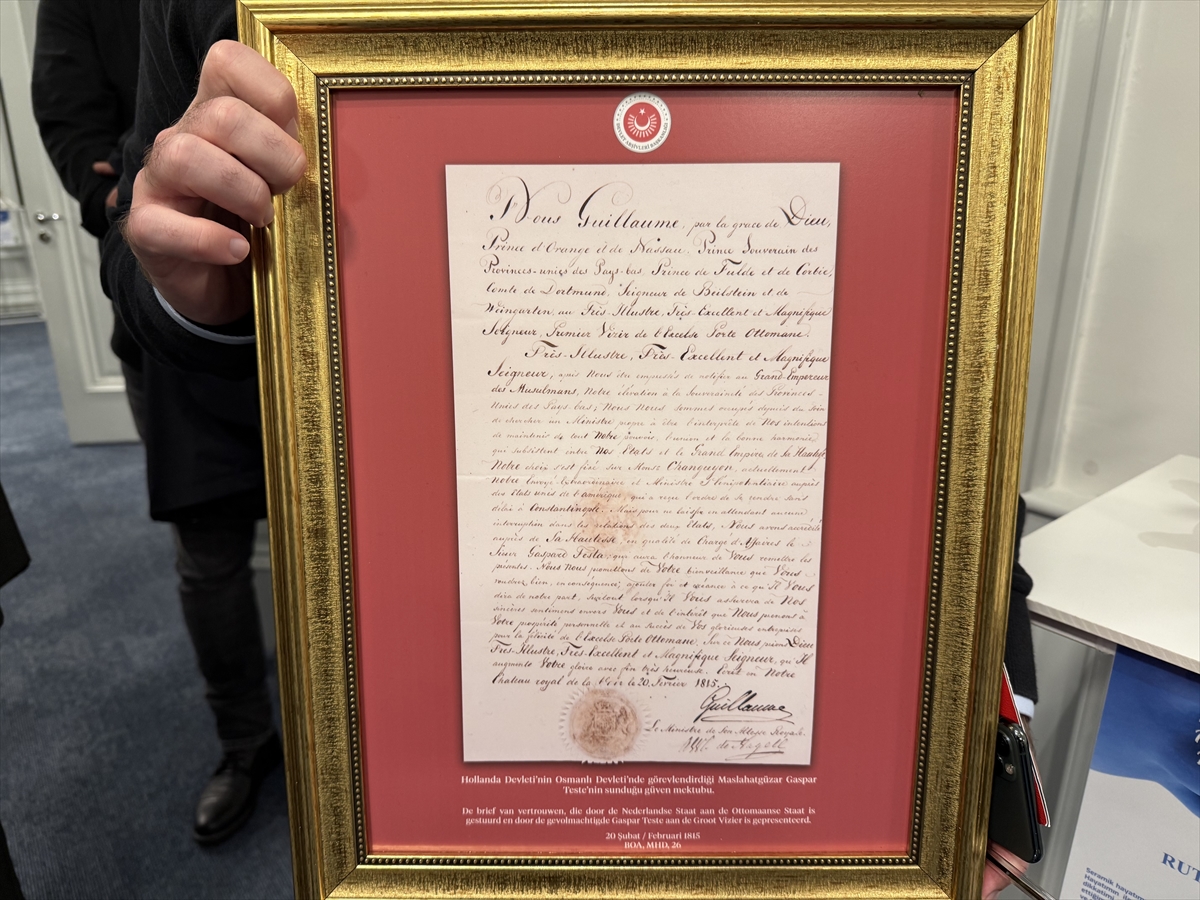 DEVLET ARŞİVLERİ BAŞKANLIĞI
Nous Guillaume, par la grace de Dieu,
Prince d'Orange et de Nassau, Prince Souverain des
Provinces-unies des Pays-bas, Prince de Fulde et de Corvie,
Comte de Dortmund, Seigneur de Beilstein et de
Weingarten, au Très-Illustre, Très-Excellent et Magnifique
Seigneur, Premier Vizir de l'Excelse Porte Ottomane.
Très-Illustre, Très-Excellent et Magnifique
Seigneur, après Nous être empressés de notifier au Grand-Empereur
des Musulmans, Notre élévation à la Souveraineté des Provinces-
Unies des Pays-bas; Nous Nous sommes occupés depuis du soin
de chercher un Ministre propre à être l'interprète de Nos intentions
de maintenir de tout Notre pouvoir, l'union et la bonne harmonie
qui subsistent entre Nos Etats et le Grand Empire de Sa Hautesse
Notre choix s'est fixé sur Monsr Changuyon, actuellement
notre Envoyé Extraordinaire et Ministre Plénipotentiaire auprès
des Etats unis de l'amérique, qui a reçu l'ordre de se rendre sans
délai à Constantinople. Mais pour ne laisser en attendant aucune
interruption dans les relations des deux Etats, Nous avons accrédité
auprès de Sa Hautesse, en qualité de Chargé d'Affaires le
Sieur Gaspard Testa, qui aura l'honneur de Vous remettre les
présentes. Nous Nous promettons de Votre bienveillance que Vous
voudrez bien, en conséquence, ajouter foi et créance à ce qu'Il Vous
dira de notre part, surtout lorsqu'Il Vous assurera de Nos
sincères sentimens envers Vous et de l'intérêt que Nous prenons à
Votre prospérité personnelle et au succès de Vos glorieuses entreprises
pour la félicité de l'Excelse Porte Ottomane, Sur ce Nous prions Dieu
Très-Illustre, Très-Excellent et Magnifique Seigneur, qu'Il
augmente Votre gloire avec fin très heureuse. Ecrit en Notre
Chateau royal de la 20. Février 1815.
Guillaume
Le Ministre de Son Altesse Royale.
de Nagell
Hollanda Devleti'nin Osmanlı Devleti'nde görevlendirdiği Maslahatgüzar Gaspar
Teste'nin sunduğu güven mektubu.
De brief van vertrouwen, die door de Nederlandse Staat aan de Ottomaanse Staat is
gestuurd en door de gevolmachtigde Gaspar Teste aan de Groot Vizier is gepresenteerd.
20 Şubat / Februari 1815
BOA, MHD, 26
RUT
Seramik hayatım
Hayatımın
dikkatimi